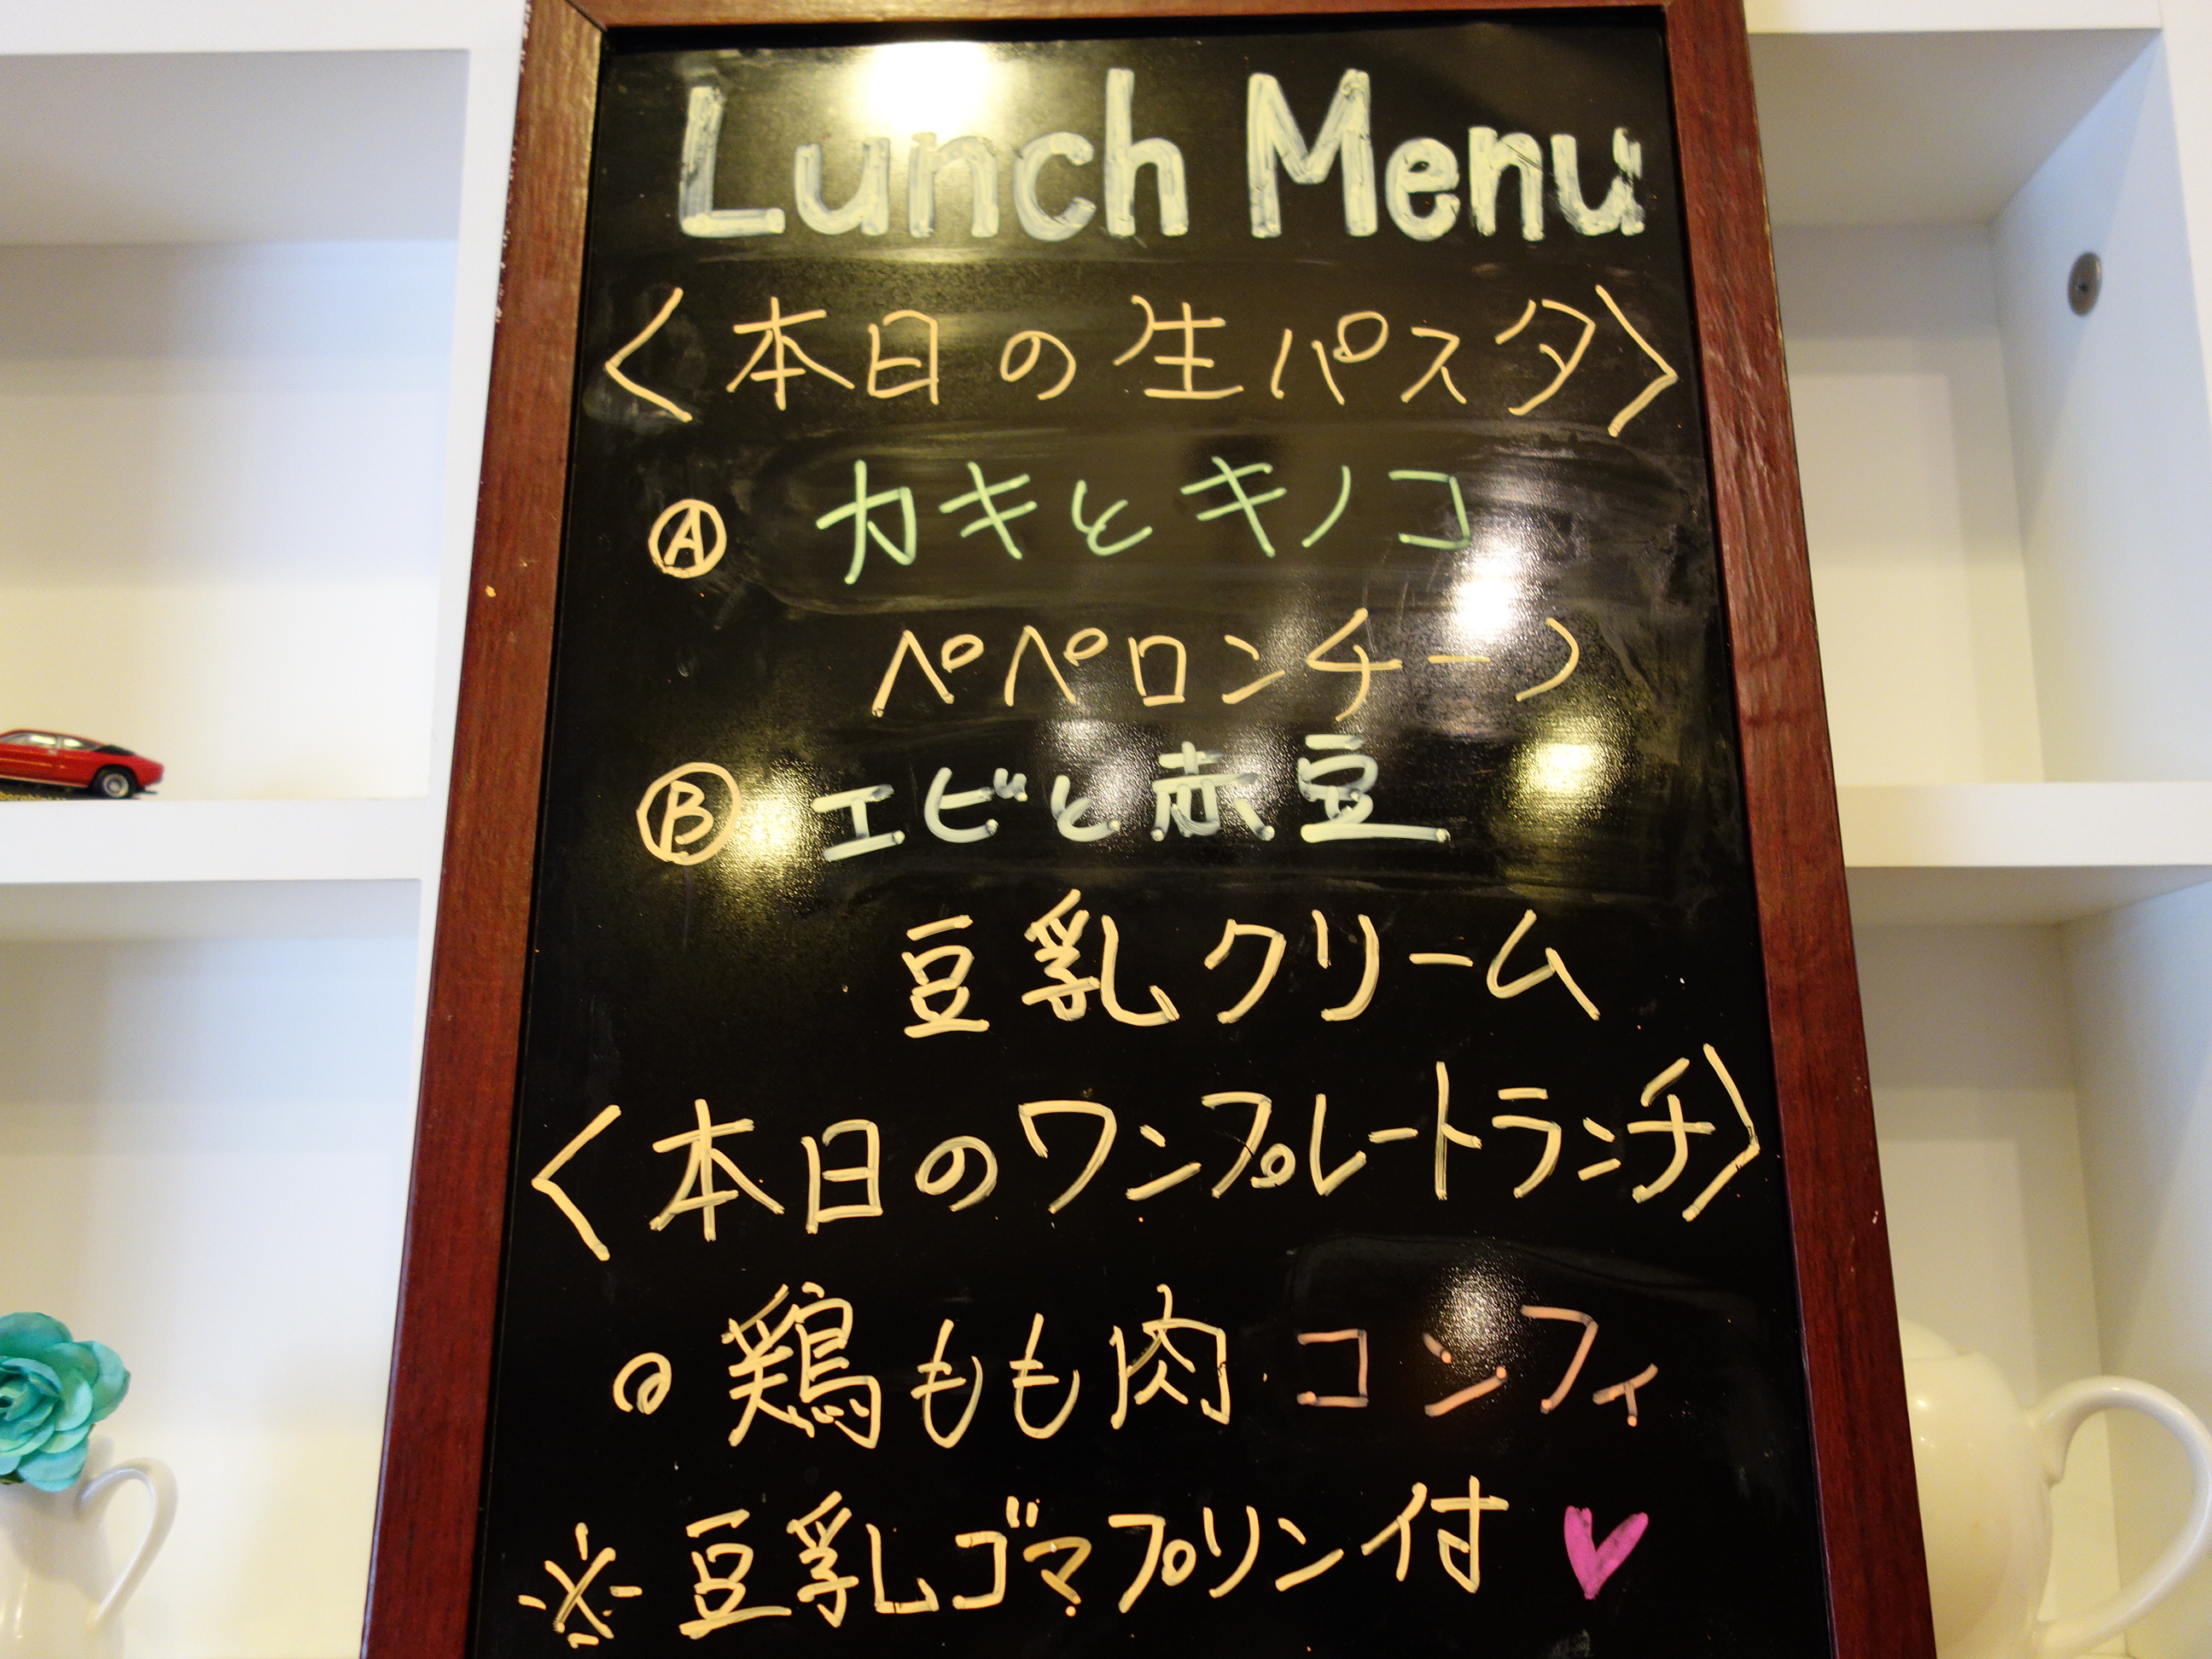 Lunch Menu
〈本日の生パスタ〉
Ⓐ カキとキノコ
ペペロンチーノ
Ⓑ エビと赤豆
豆乳クリーム
〈本日のワンプレートランチ〉
。鶏もも肉 コンフィ
※豆乳ゴマプリン付♥